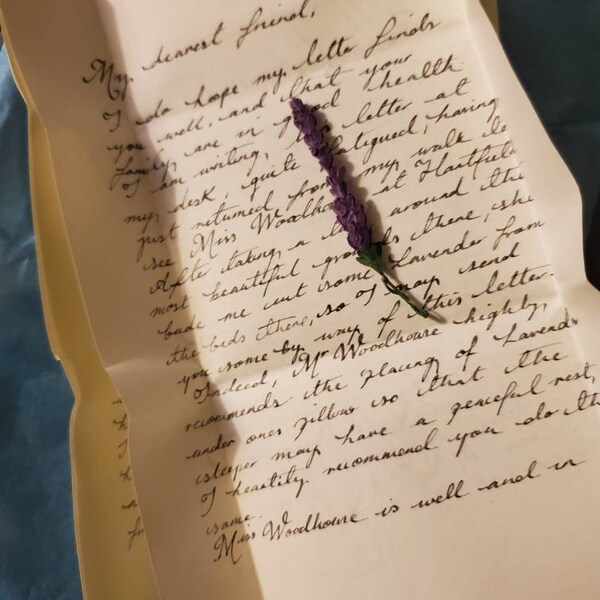 My dearest friend,
I do hope my letter finds
you well, and that your
family, are in good health.
I am writing, letter at
my desk, quite fatigued, having
just returned from my walk to
see Miss Woodhouse at Hartfield
After taking a around the
most beautiful grounds there, she
bade me cut some lavender from
the beds there, so I may send
you some by way of this letter.
Indeed, Mr Woodhouse highly,
recommends the placing of Lavender
under ones pillow so that the
sleeper may have a peaceful rest,
I heartily recommend you do the
same.
Miss Woodhouse is well and in